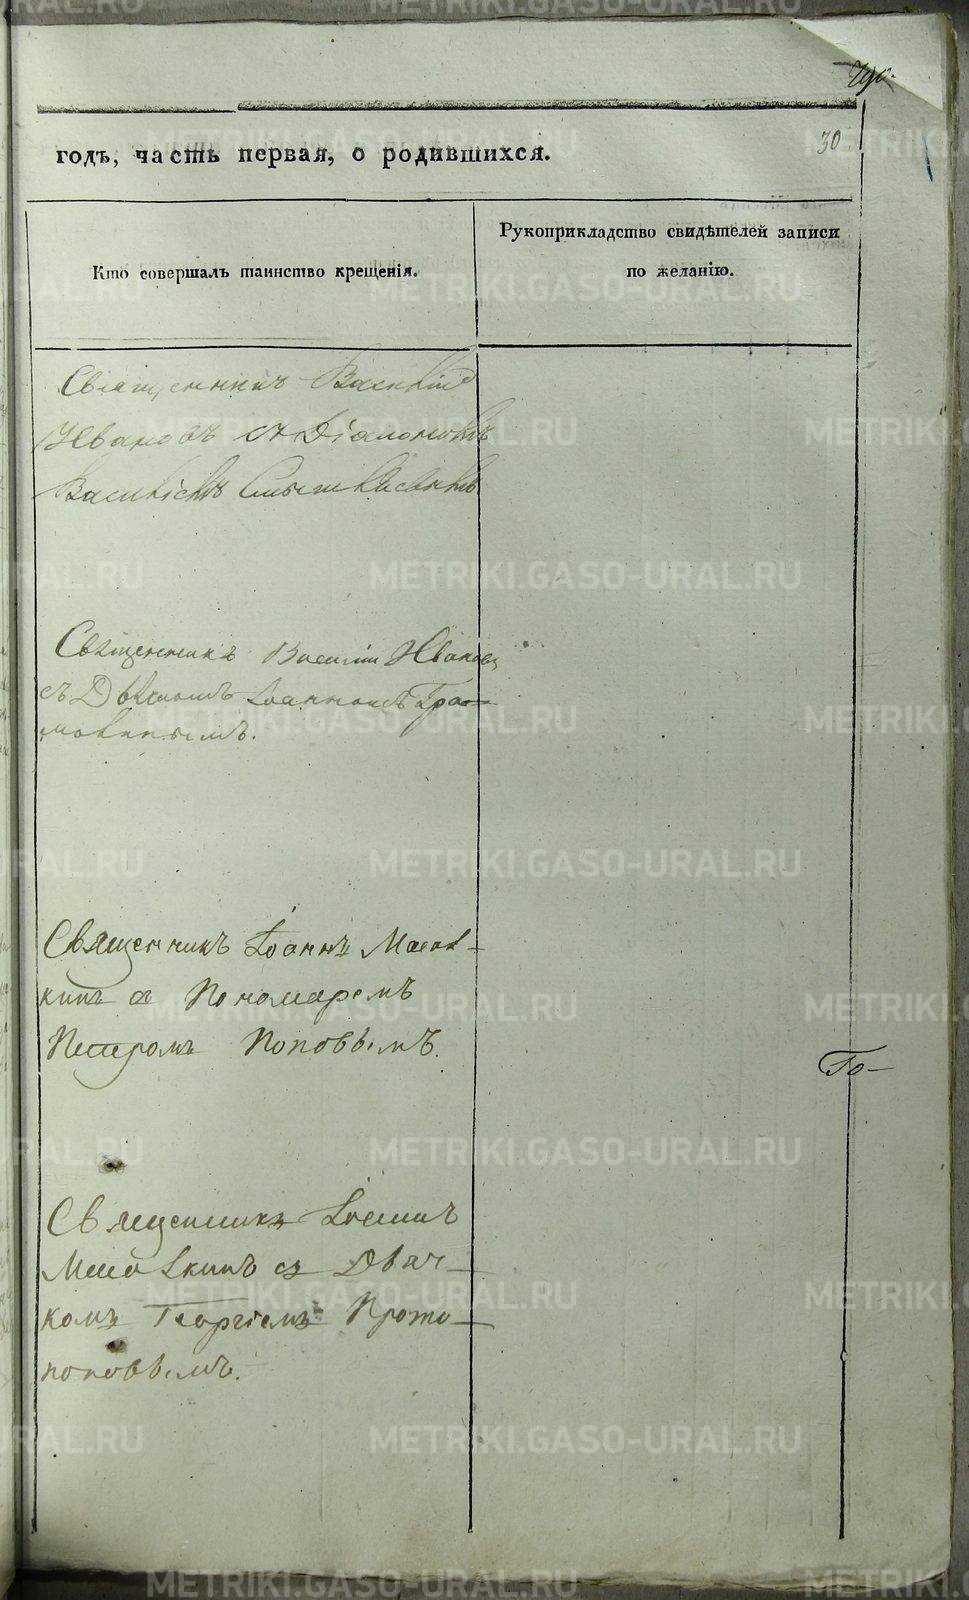 290.
30
годъ, часть первая, о родившихся.
Кто совершалъ таинство крещенія.
Рукоприкладство свидѣтелей записи
по желанію.
Священникъ Василій
Ивановъ съ Діакономъ
Василіемъ
Священникъ Василій Ивановъ
съ Дьякономъ Іоанномъ Гра-
матинымъ.
Священникъ Іоаннъ Масал-
кинъ съ Пономаремъ
Петромъ Поповымъ.
То-
Священникъ Іоаннъ
Масалкинъ съ Дьяч-
комъ Георгіемъ Прото-
поповымъ.
METRIKI.GASO-URAL.RU